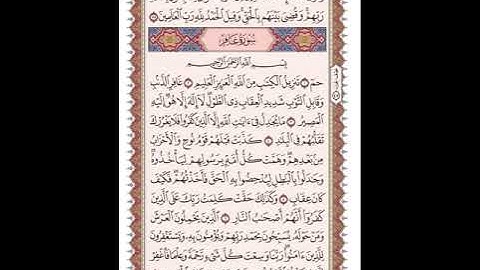 رَبِّهِمْ وَقُضِىَ بَيْنَهُم بِالْحَقِّ وَقِيلَ الْحَمْدُ لِلَّهِ رَبِّ الْعَالَمِينَ
سُورَةُ غَافِرٍ
بِسْمِ اللَّهِ الرَّحْمَٰنِ الرَّحِيمِ
حمٓ ۝ تَنزِيلُ الْكِتَٰبِ مِنَ اللَّهِ الْعَزِيزِ الْعَلِيمِ ۝ غَافِرِ الذَّنۢبِ
وَقَابِلِ التَّوْبِ شَدِيدِ الْعِقَابِ ذِى الطَّوْلِ لَآ إِلَٰهَ إِلَّا هُوَ إِلَيْهِ
الْمَصِيرُ ۝ مَا يُجَٰدِلُ فِىٓ ءَايَٰتِ اللَّهِ إِلَّا الَّذِينَ كَفَرُوا فَلَا يَغْرُرْكَ
تَقَلُّبُهُمْ فِى الْبِلَٰدِ ۝ كَذَّبَتْ قَبْلَهُمْ قَوْمُ نُوحٍ وَالْأَحْزَابُ
مِنۢ بَعْدِهِمْ وَهَمَّتْ كُلُّ أُمَّةٍۭ بِرَسُولِهِمْ لِيَأْخُذُوهُ
وَجَٰدَلُوا بِالْبَٰطِلِ لِيُدْحِضُوا بِهِ الْحَقَّ فَأَخَذْتُهُمْ فَكَيْفَ
كَانَ عِقَابِ ۝ وَكَذَٰلِكَ حَقَّتْ كَلِمَتُ رَبِّكَ عَلَى الَّذِينَ
كَفَرُوٓا أَنَّهُمْ أَصْحَٰبُ النَّارِ ۝ الَّذِينَ يَحْمِلُونَ الْعَرْشَ
وَمَنْ حَوْلَهُ يُسَبِّحُونَ بِحَمْدِ رَبِّهِمْ وَيُؤْمِنُونَ بِهِ وَيَسْتَغْفِرُونَ
لِلَّذِينَ ءَامَنُوا رَبَّنَا وَسِعْتَ كُلَّ شَىْءٍ رَّحْمَةً وَعِلْمًا فَاغْفِرْ